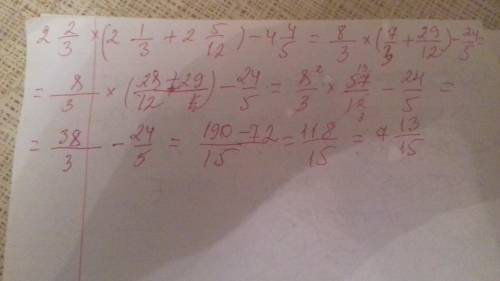 2 2/3 × (2 1/3 + 2 5/12) − 4 4/5 = 8/3 × (7/3 + 29/12) − 24/5
= 8/3 × (28+29/12) − 24/5 = 8/3 × 57/12 − 24/5 =
= 38/3 − 24/5 = 190−72/15 = 118/15 = 7 13/15